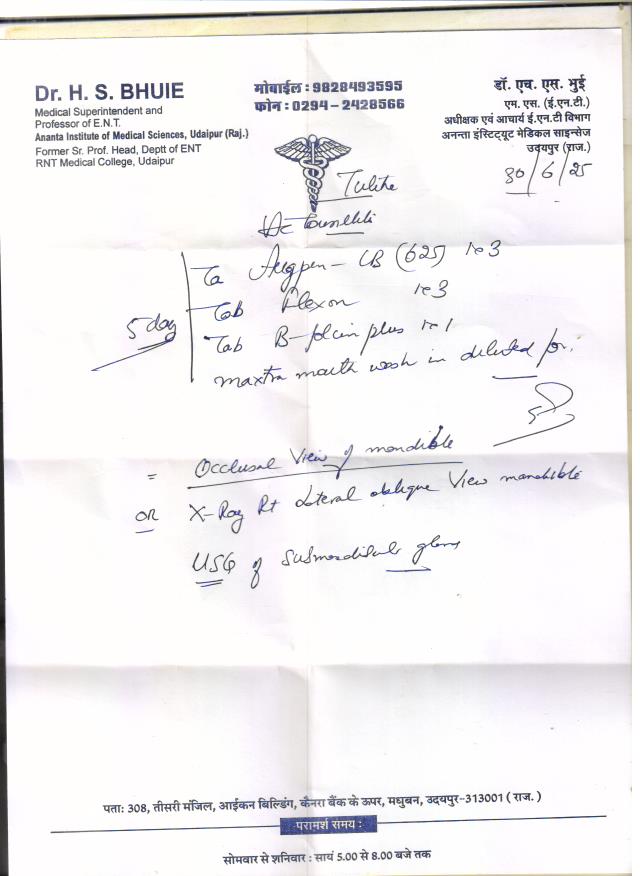 Dr. H. S. BHUIE
Medical Superintendent and
Professor of E.N.T.
Ananta Institute of Medical Sciences, Udaipur (Raj.)
Former Sr. Prof. Head, Deptt of ENT
RNT Medical College, Udaipur
मोबाईल : 9828493595
फोन : 0294-2428566
डॉ. एच. एस. भुई
एम. एस. (ई.एन.टी.)
अधीक्षक एवं आचार्य ई.एन.टी विभाग
अनन्ता इंस्टिट्यूट मेडिकल साइन्सेज
उदयपुर (राज.)
30/6/25
Augpen - LB (625) 1x3
Tab Flexon 1x3
5 day
Tab B-folcin plus 1x1
maxtra mouth wash in diluted for
= Occlusal View of mandible
OR X-Ray Rt Lateral oblique View mandible
USG of Submandibular gland
पता: 308, तीसरी मंजिल, आईकन बिल्डिंग, कैनरा बैंक के ऊपर, मधुबन, उदयपुर-313001 ( राज. )
परामर्श समय :
सोमवार से शनिवार : सायं 5.00 से 8.00 बजे तक